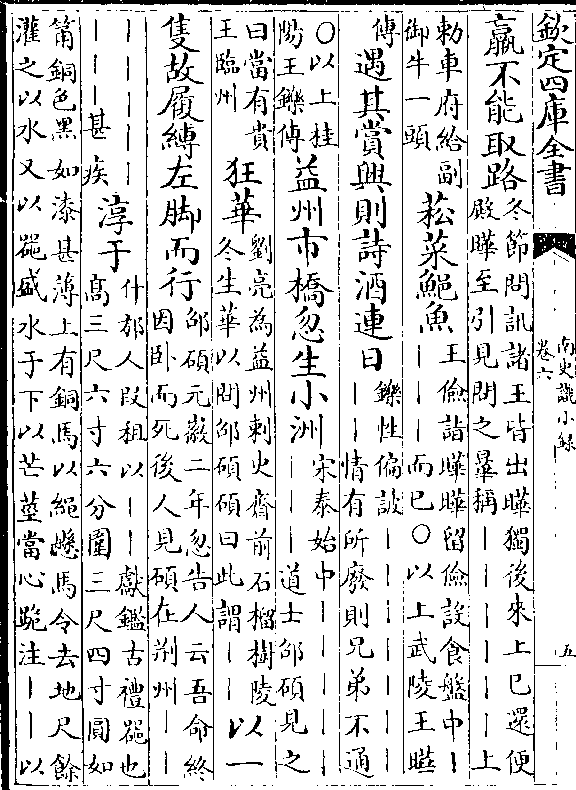 欽定四庫全書
南史識小録
卷六
五
羸不能取路
冬節問訊諸王皆出曄獨後來上已還便
殿曄至引見問之曄稱｜｜｜｜｜上
勅車府給副
御牛一頭
菘菜鮑魚
王儉詣曄曄留儉設食盤中｜
｜｜｜而已○以上武陵王曄
傳
遇其賞興則詩酒連日
鑠性偏詖｜｜｜｜｜
｜｜｜｜情有所廢則兄弟不通
○以上桂
陽王鑠傳
益州市橋忽生小洲
宋泰始中｜｜｜｜｜
｜｜｜道士邵碩見之
曰當有貴
王臨州
狂華
劉亮為益州刺史齋前石榴樹陵
冬生華以問邵碩碩曰此謂｜｜
以一
隻故履縛左脚而行
邵碩元徽二年忽告人云吾命終
因卧而死後人見碩在荆州｜｜
｜｜｜｜｜
｜｜｜甚疾
淳于
什邡人段祖以｜｜獻鑑古禮器也
高三尺六寸六分圍三尺四寸圓如
筩銅色黑如漆甚薄上有銅馬以繩懸馬令去地尺餘
灌之以水又以器盛水于下以芒莖當心跪注｜｜以